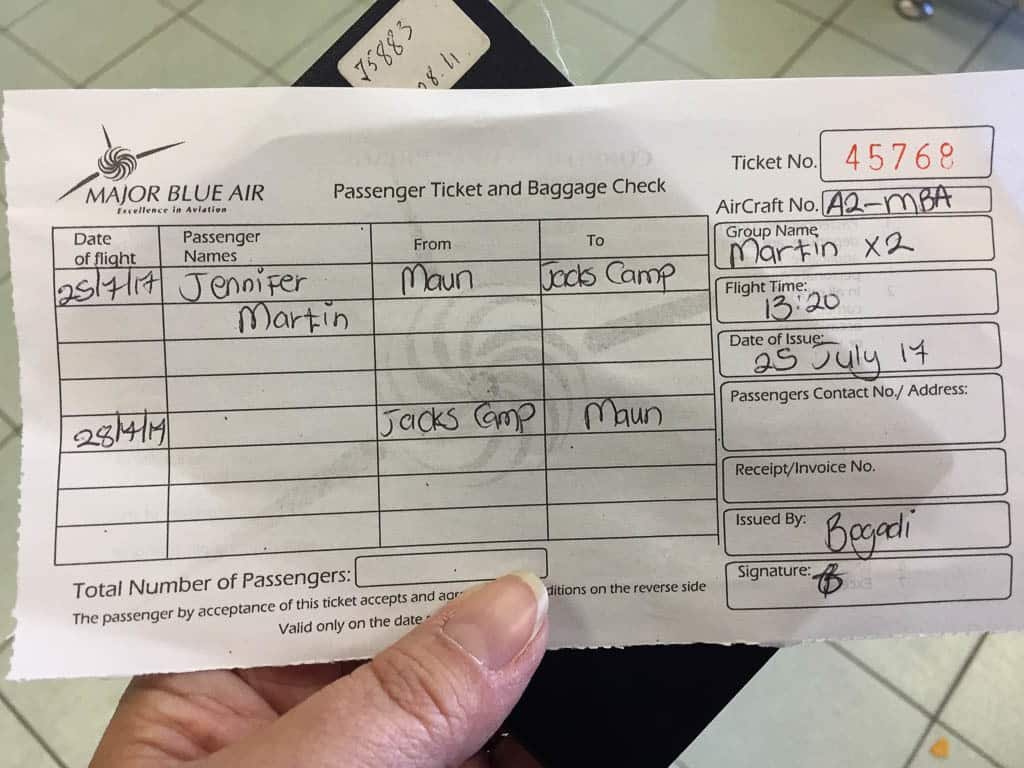 J5883
28.11
MAJOR BLUE AIR
Excellence in Aviation
Passenger Ticket and Baggage Check
Ticket No. 45768
AirCraft No. A2-MBA
Group Name
Martin x2
Flight Time:
13:20
Date of Issue:
25 July 17
Passengers Contact No./ Address:
Receipt/Invoice No.
Issued By: Bogadi
Signature:
Date of flight Passenger Names From To
25/7/17 Jennifer Maun Jacks Camp
Martin
28/7/17 Jacks Camp Maun
Total Number of Passengers:
The passenger by acceptance of this ticket accepts and ditions on the reverse side
Valid only on the date